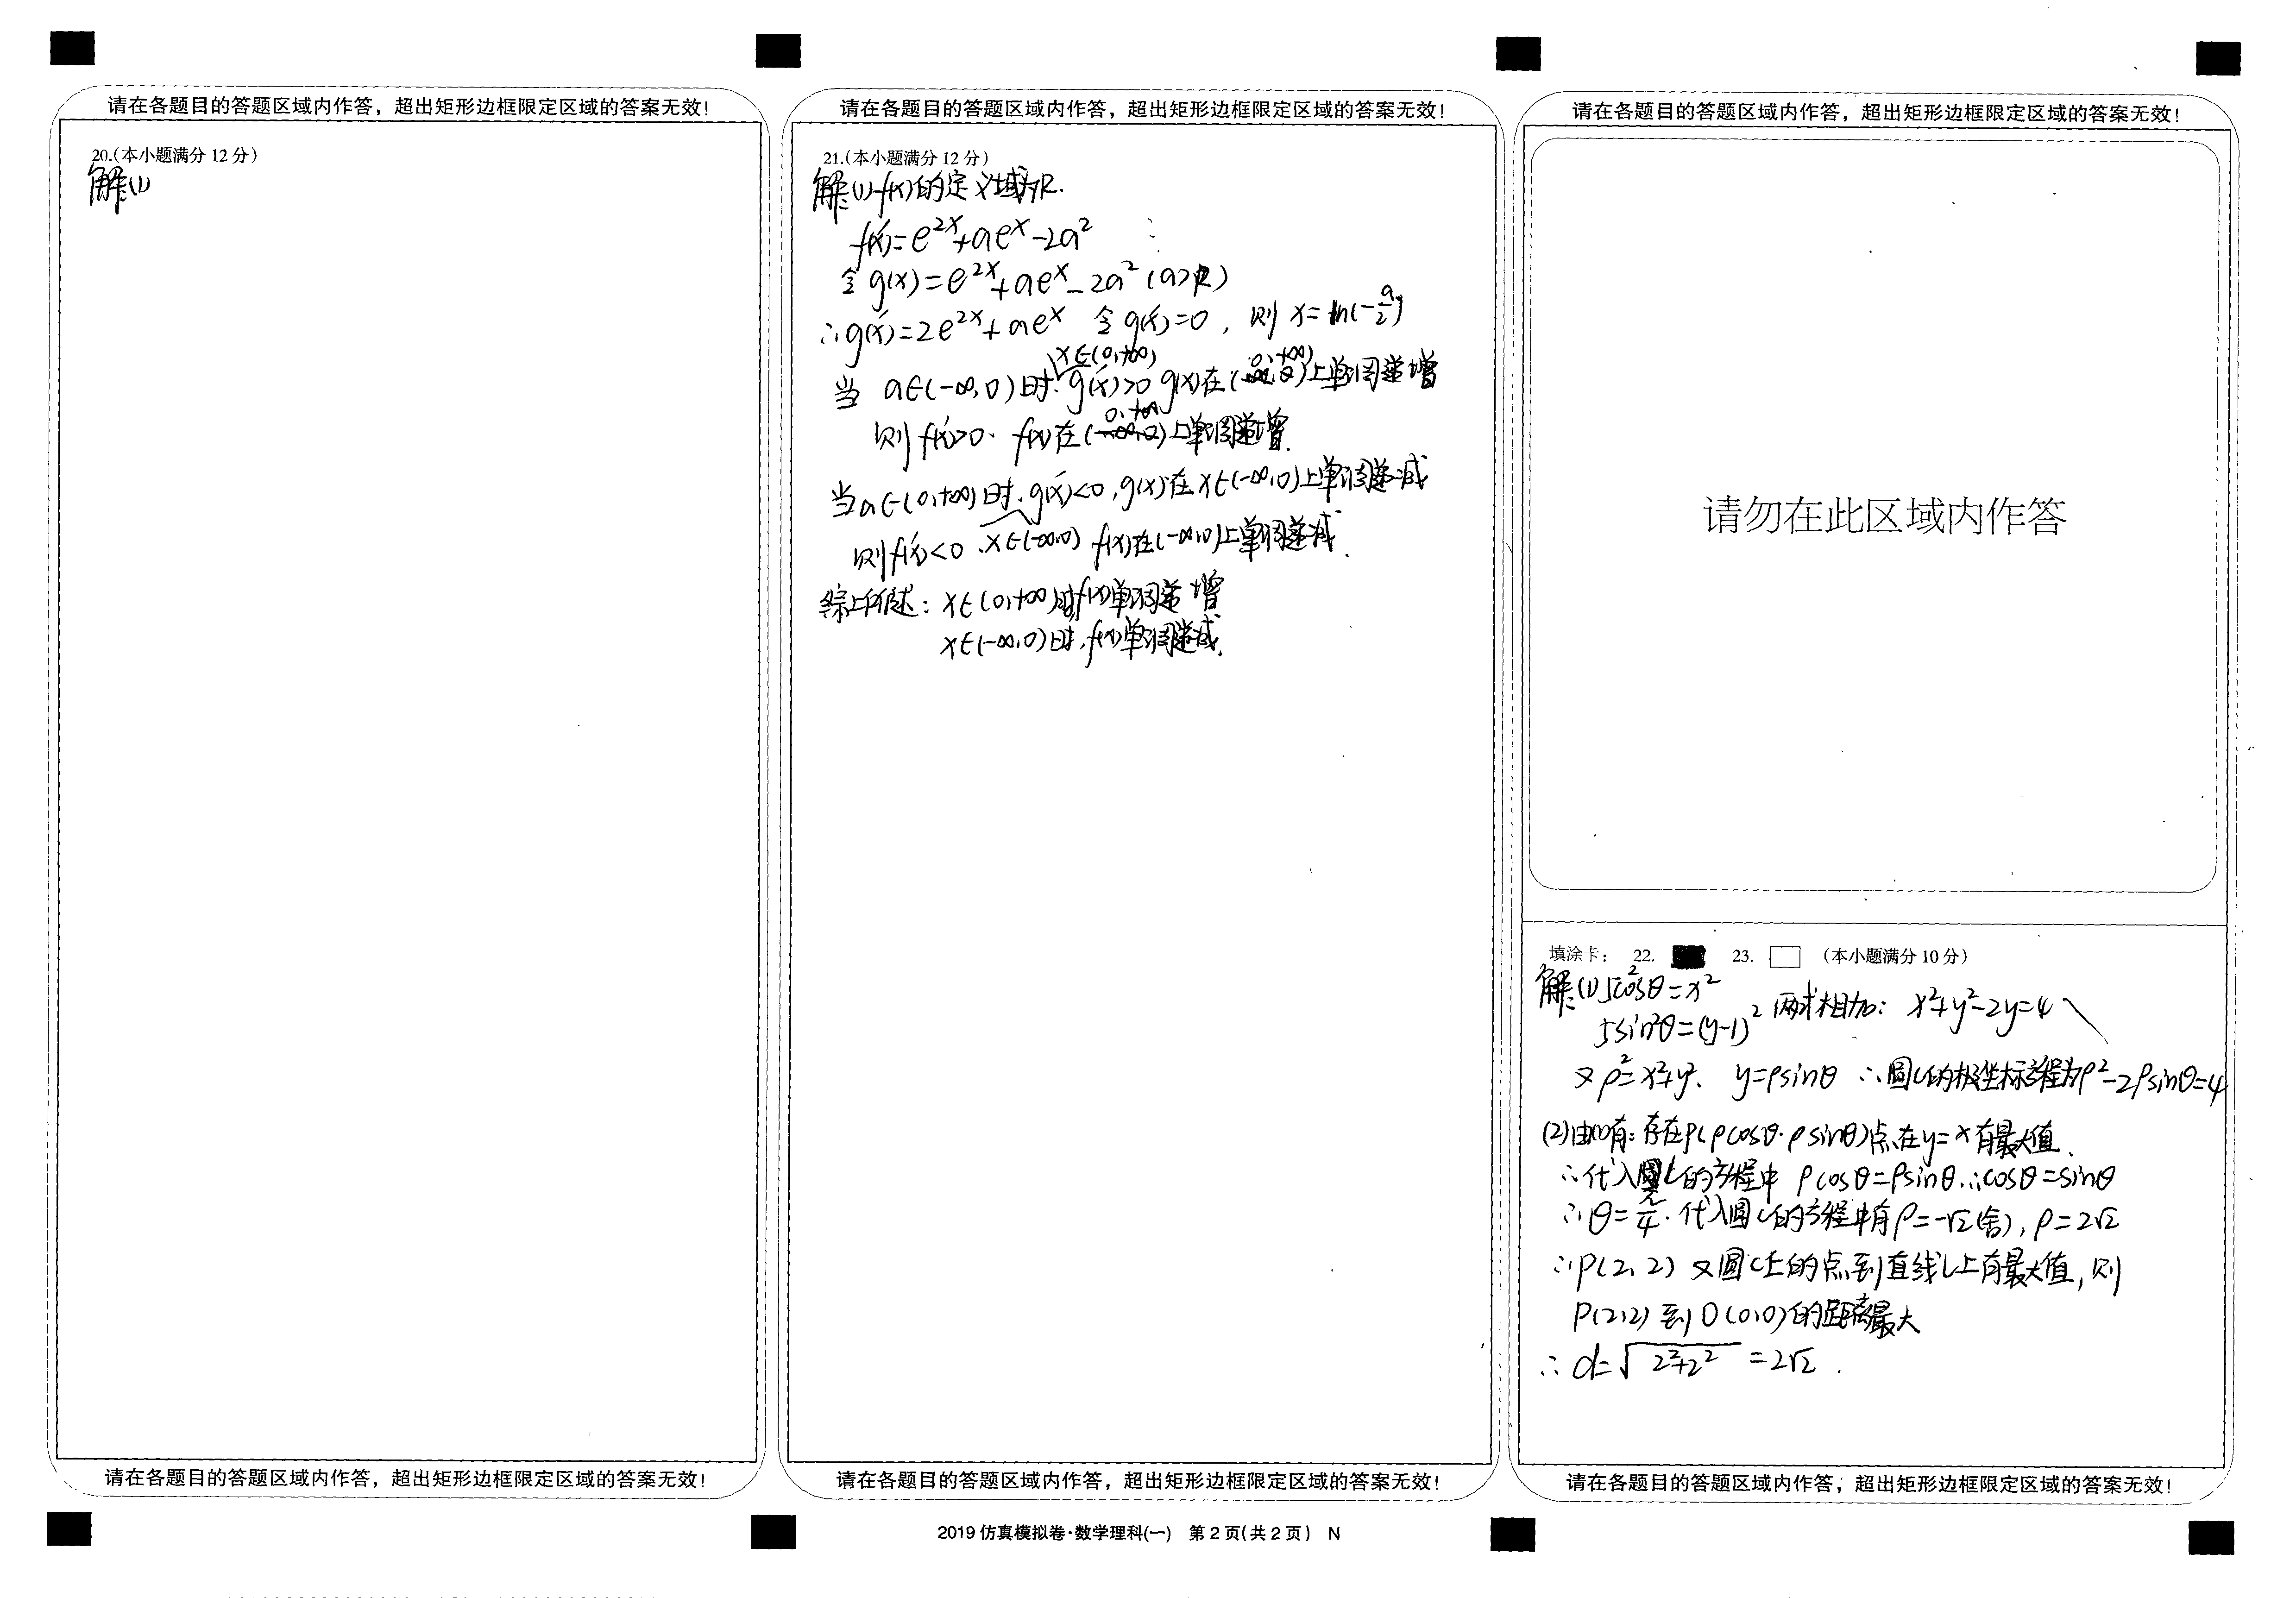 请在各题目的答题区域内作答，超出矩形边框限定区域的答案无效！
20.（本小题满分 12 分）
解:(1)
请在各题目的答题区域内作答，超出矩形边框限定区域的答案无效！
请在各题目的答题区域内作答，超出矩形边框限定区域的答案无效！
21.（本小题满分 12 分）
解:(1) f(x)的定义域为R.
f'(x)=e^{2x}+ae^x-2a²
令 g(x)=e^{2x}+ae^x-2a² (a>R)
∴g'(x)=2e^{2x}+ae^x 令 g'(x)=0，则 x=ln(-a/2)
当 a∈(-∞,0)时. x∈(0,+∞) g'(x)>0 g(x)在(0,+∞)上单调递增
则 f'(x)>0. f(x)在(0,+∞)上单调递增.
当a∈(0,+∞)时. g'(x)<0, g(x)在x∈(-∞,0)上单调递减
则f'(x)<0. x∈(-∞,0) f(x)在(-∞,0)上单调递减.
综上所述: x∈(0,+∞)时f(x)单调递增
x∈(-∞,0)时, f(x)单调递减.
请在各题目的答题区域内作答，超出矩形边框限定区域的答案无效！
请在各题目的答题区域内作答，超出矩形边框限定区域的答案无效！
请勿在此区域内作答
填涂卡： 22. 23. （本小题满分 10 分）
解:(1) 5cos²θ=x²
5sin²θ=(y-1)² 两式相加: x²+y²-2y=4
又 ρ²=x²+y². y=ρsinθ ∴圆C的极坐标方程为ρ²-2ρsinθ=4
(2)由(1)有: 存在P(ρcosθ·ρsinθ)点在y=x有最大值.
∴代入圆C的方程中 ρcosθ=ρsinθ.∴cosθ=sinθ
∴θ=π/4. 代入圆C的方程中有ρ=-√2(舍), ρ=2√2
∴P(2,2) 又圆C上的点到直线l上有最大值, 则
P(2,2)到O(0,0)的距离最大
∴d=√(2²+2²)=2√2.
请在各题目的答题区域内作答，超出矩形边框限定区域的答案无效！
2019 仿真模拟卷·数学理科(一) 第 2 页(共 2 页) N